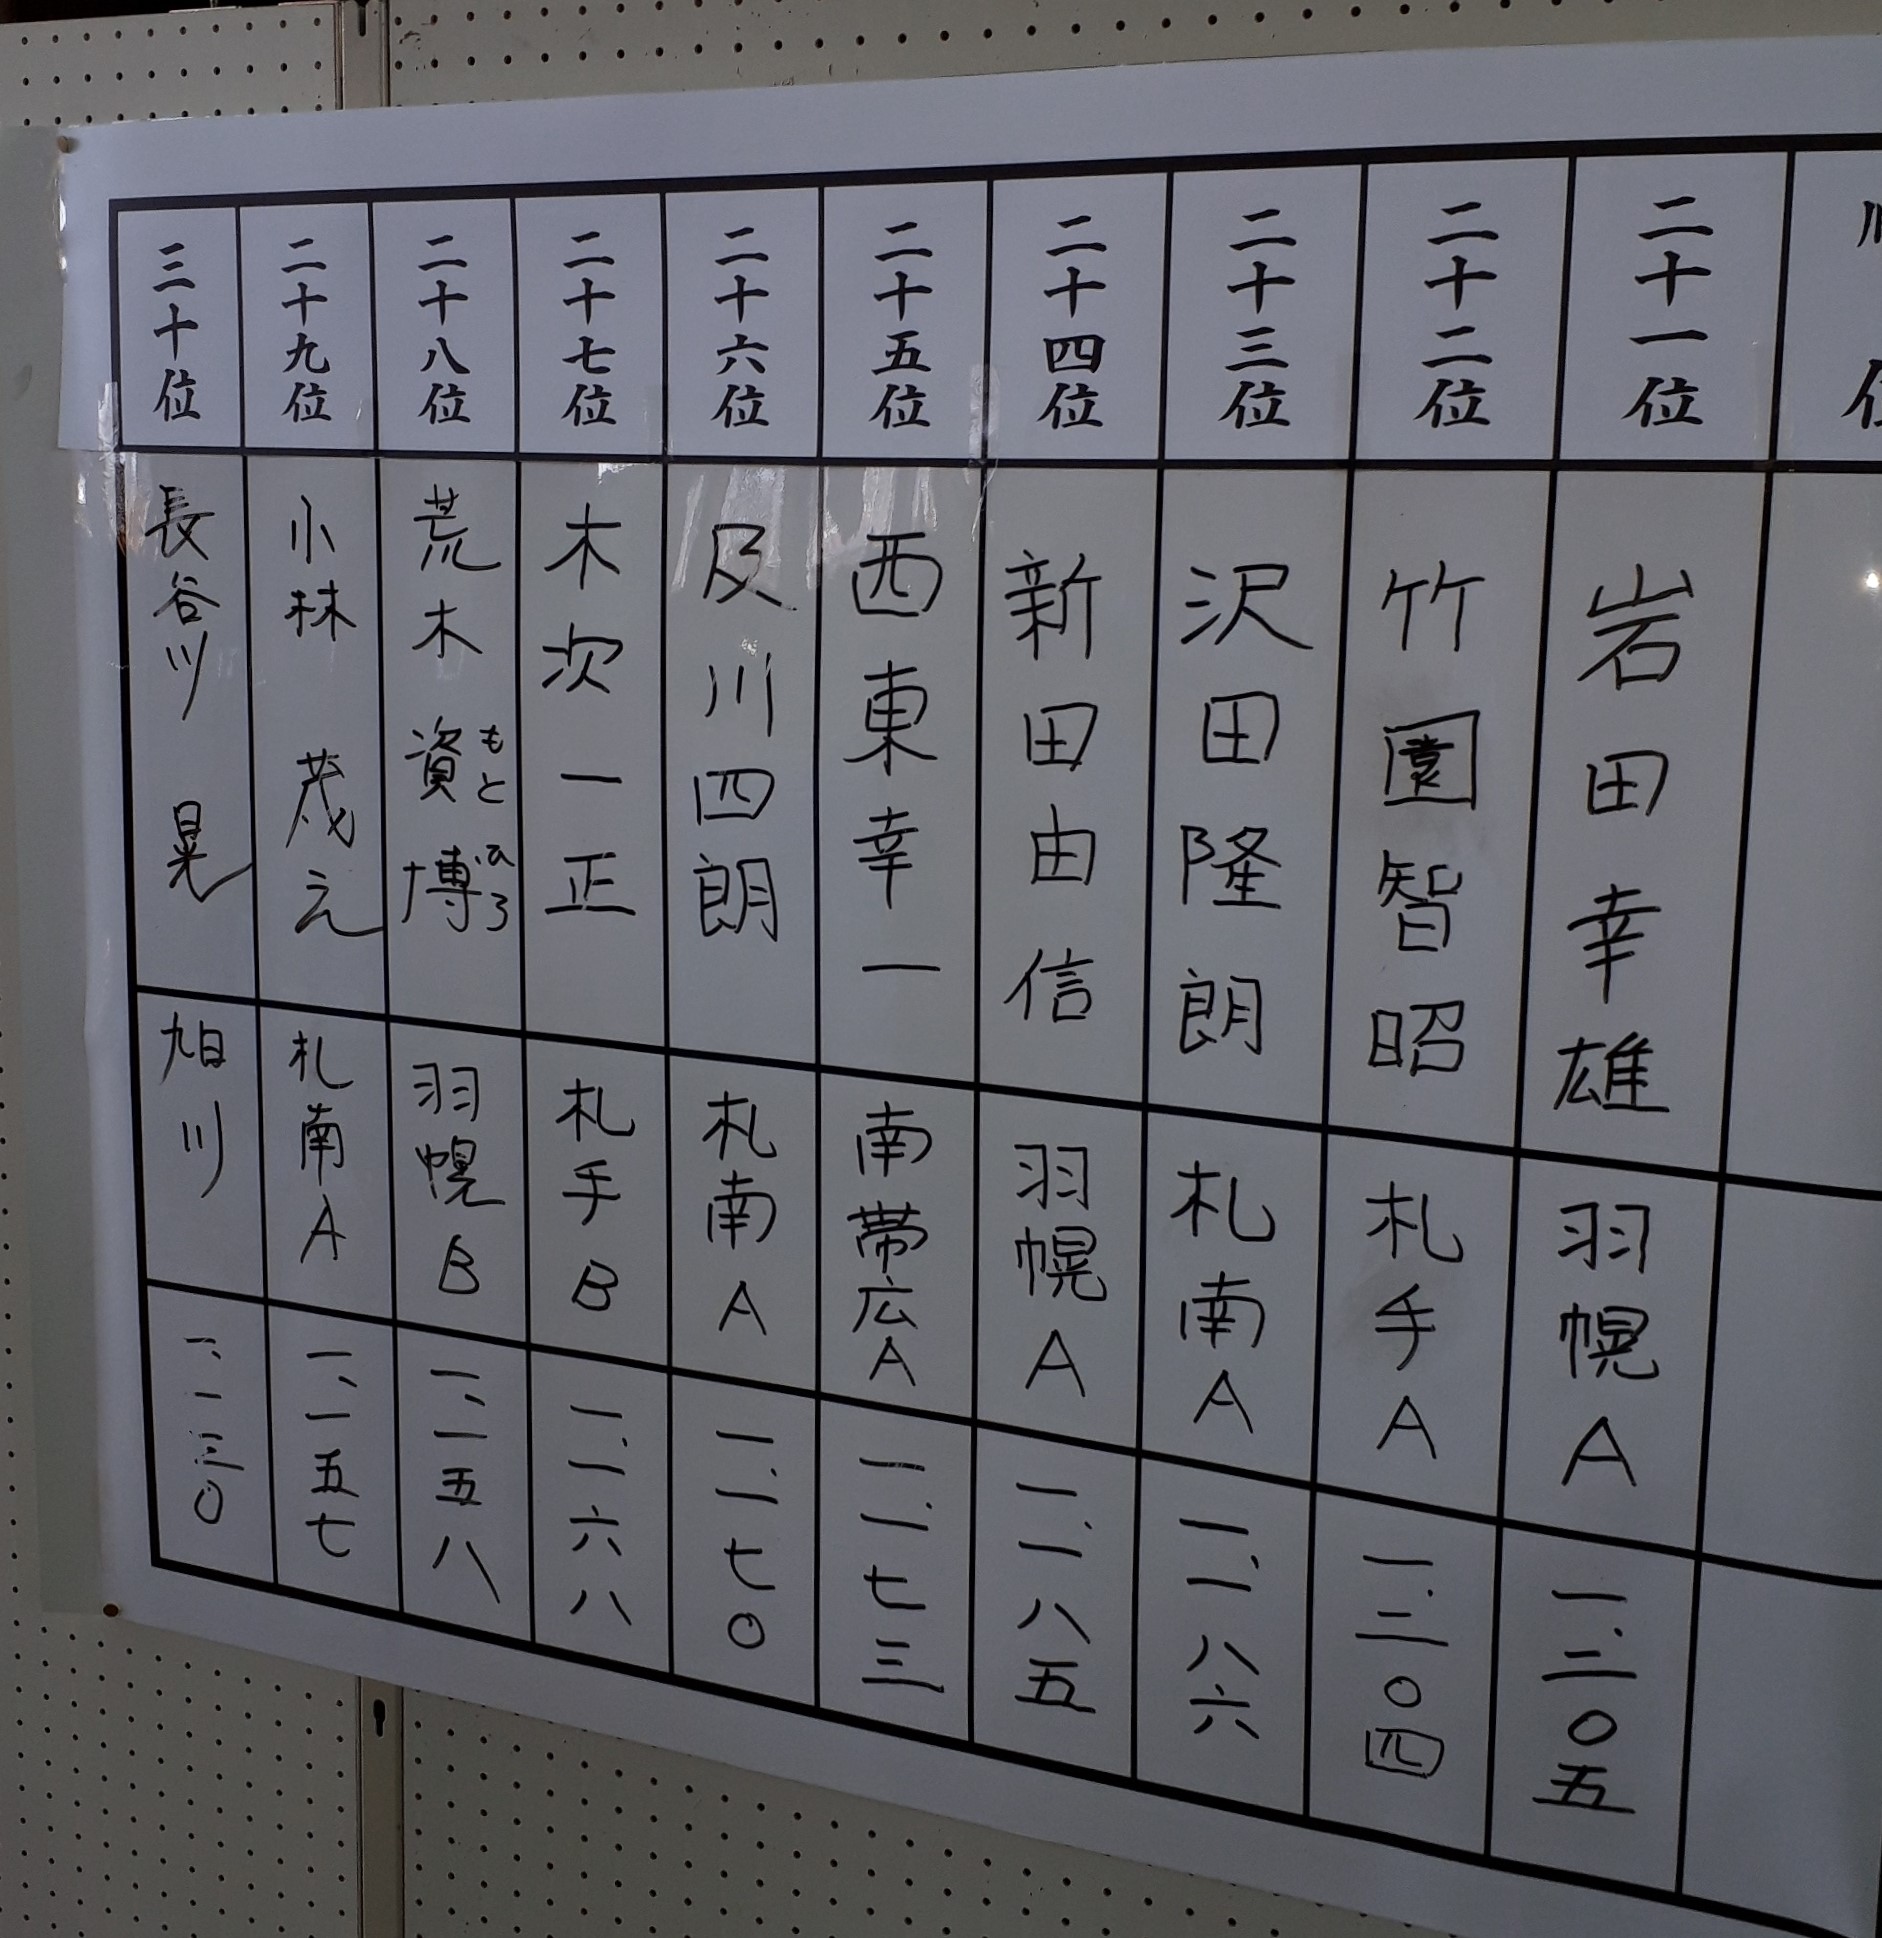 順位
二十一位
岩田幸雄
羽幌A
一、二〇五
二十二位
竹園智昭
札手A
一、二〇四
二十三位
沢田隆朗
札南A
一、一八六
二十四位
新田由信
羽幌A
一、一八五
二十五位
西東幸一
南帯広A
一、一七三
二十六位
及川四朗
札南A
一、一七〇
二十七位
木次一正
札手B
一、一六八
二十八位
荒木資博
もとひろ
羽幌B
一、一五八
二十九位
小林茂之
札南A
一、一五七
三十位
長谷川晃
旭川
一、一三〇